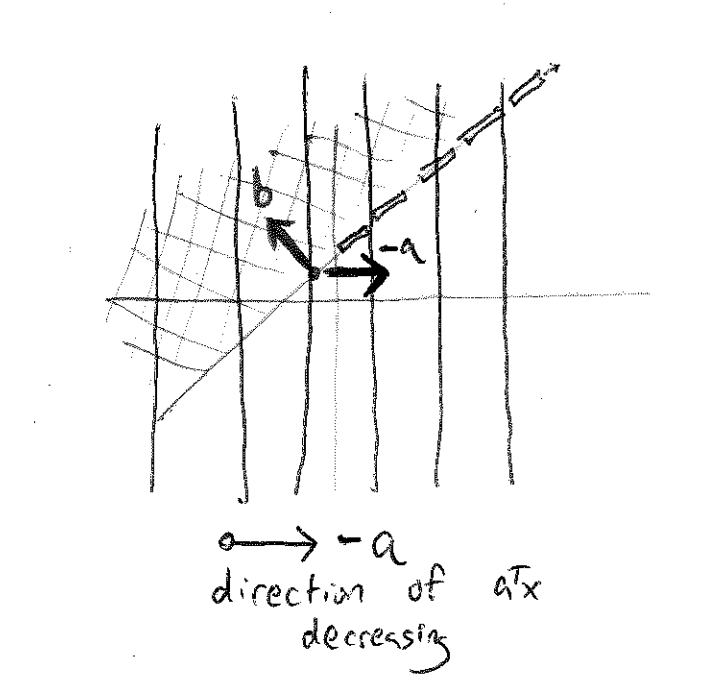 b
-a
-a
direction of aᵀx
decreasing